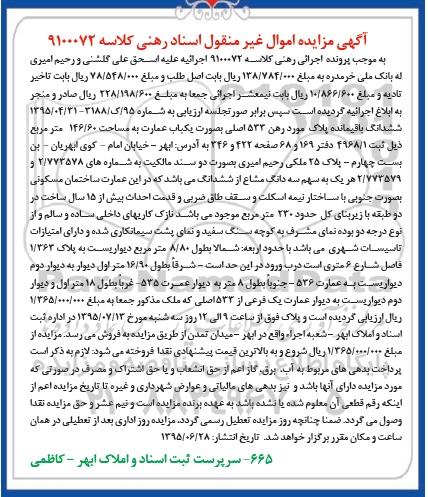 آگهی مزایده اموال غیر منقول اسناد رهنی کلاسه ۹۱۰۰۰۷۲
به موجب پرونده اجرائی رهنی کلاسه ۹۱۰۰۰۷۲ اجرائیه علیه اسحق علی گلشنی و رحیم امیری
له بانک ملی خرمدره به مبلغ ۱۳۸/۷۸۴/۰۰۰ ریال بابت اصل طلب و مبلغ ۷۸/۵۴۸/۰۰۰ ریال بابت تاخیر
تادیه و مبلغ ۱۰/۸۶۶/۶۰۰ ریال بابت نیمعشر اجرائی جمعا به مبلغ ۲۲۸/۱۹۸/۶۰۰ ریال صادر و منجر
به ابلاغ اجرائیه گردیده است سپس برابر صورتجلسه ارزیابی به شماره ۹۵/ک/۳۱۸۸-۱۳۹۵/۰۴/۳۱
ششدانگ باقیمانده پلاک مورد رهن ۵۳۳ اصلی بصورت یکباب عمارت به مساحت ۱۴۶/۶۰ متر مربع
ذیل ثبت ۴۹۶۸/۱ دفتر ۱۶۹ و ۶۸ صفحه ۴۲۲ و ۳۴۶ به آدرس: ابهر - خیابان امام - کوی ابهریان - بن
بست چهارم - پلاک ۲۵ ملکی رحیم امیری بصورت دو سند مالکیت به شماره های ۲/۷۷۳۵۷۸ و
۲/۷۷۳۵۷۹ هر یک به سهم سه دانگ مشاع از ششدانگ می باشد که در این عمارت ساختمان مسکونی
بصورت جنوبی با ساختار نیمه اسکلت و سقف طاق ضربی و قدمت احداث بیش از ۱۵ سال ساخت در
دو طبقه با زیربنای کل حدود ۲۳۰ متر مربع موجود می باشد نازک کاریهای داخلی ساده و سالم و از
نوع درجه دو بوده نمای مشرف به کوچه سنگ سفید و نمای پشت سیمانکاری شده و دارای امتیازات
تاسیسات شهری می باشد با حدود اربعه: شمالا بطول ۸/۸۰ متر مربع دیواریست به پلاک ۱/۳۶۳
فاصل شارع ۶ متری است درب ورود در این حد است - شرقاً بطول ۱۶/۹۰ متر اول دیوار به دیوار دوم
دیواریست به عمارت ۵۳۶ - جنوباً بطول ۸ متر به دیوار عمرت ۵۳۵ - غربا بطول ۱۸ متر اول و دیوار
دوم دیواریست به دیوار عمارت یک فرعی از ۵۳۳ اصلی که ملک مذکور جمعا به مبلغ ۱/۳۶۵/۰۰۰/۰۰۰
ریال ارزیابی گردیده است و پلاک فوق از ساعت ۹ الی ۱۲ روز سه شنبه مورخ ۱۳۹۵/۰۷/۱۳ در اداره ثبت
اسناد و املاک ابهر - شعبه اجراء واقع در ابهر - میدان تمدن از طریق مزایده به فروش می رسد. مزایده از
مبلغ ۱/۳۶۵/۰۰۰/۰۰۰ ریال شروع و به بالاترین قیمت پیشنهادی نقدا فروخته می شود: لازم به ذکر است
پرداخت بدهی های مربوط به آب، برق، گاز اعم از حق انشعاب و یا حق اشتراک و مصرف در صورتی که
مورد مزایده دارای آنها باشد و نیز بدهی های مالیاتی و عوارض شهرداری و غیره تا تاریخ مزایده اعم از
اینکه رقم قطعی آن معلوم شده یا نشده باشد به عهده برنده مزایده است و نیم عشر و حق مزایده نقدا
وصول می گردد. ضمنا چنانچه روز مزایده تعطیل رسمی گردد، مزایده روز اداری بعد از تعطیلی در همان
ساعت و مکان مقرر برگزار خواهد شد. تاریخ انتشار: ۱۳۹۵/۰۶/۲۸
۶۶۵- سرپرست ثبت اسناد و املاک ابهر - کاظمی